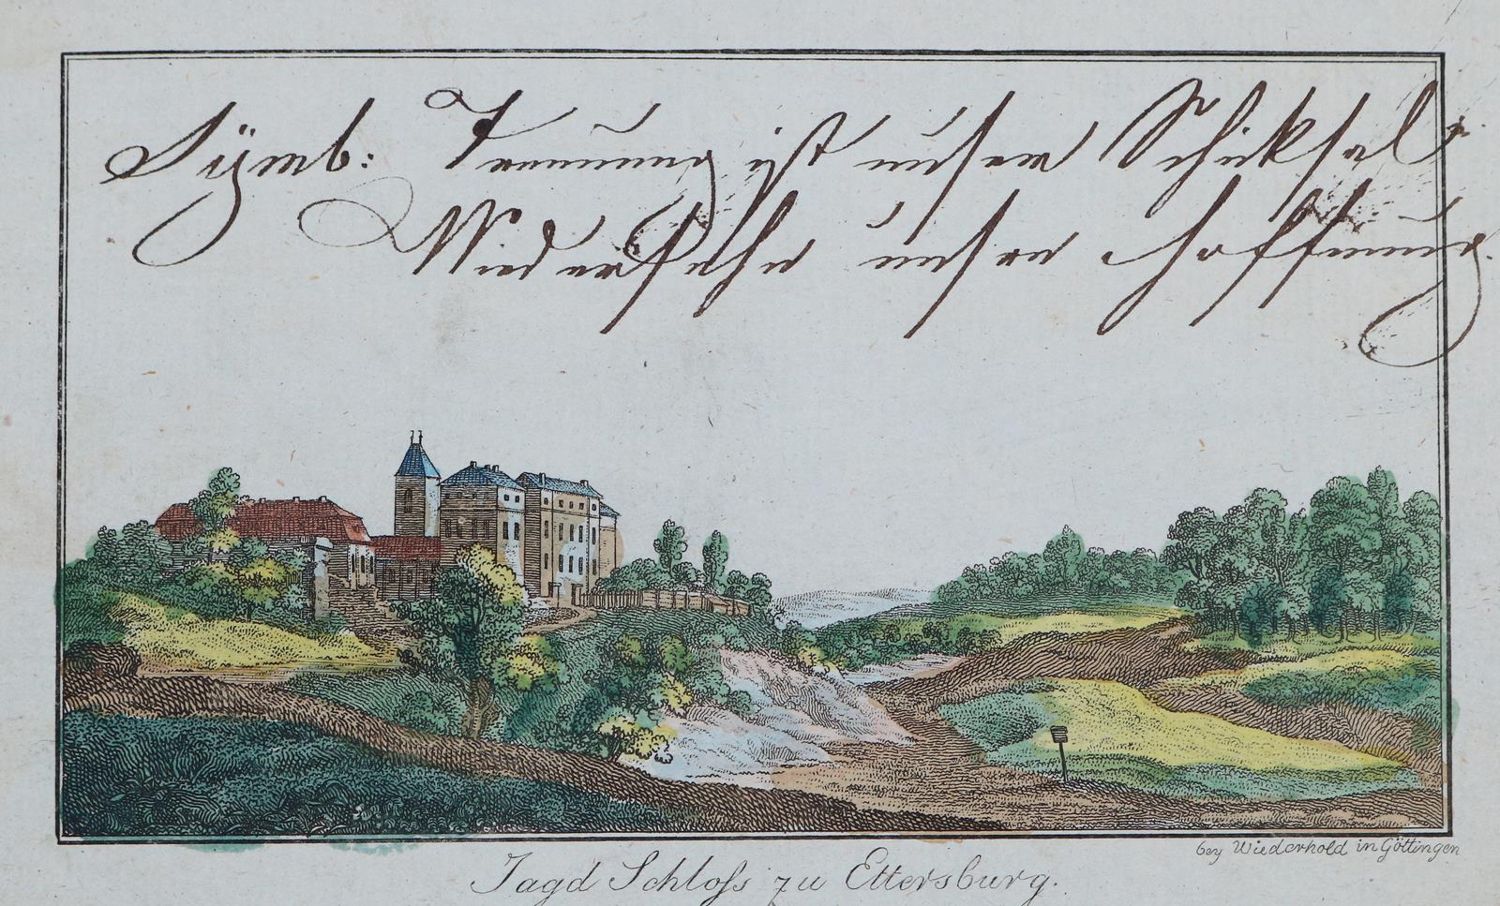 Sÿmb: Trennung ist unser Schiksal
Wiedersehn unsre Hoffnung.
bey Wiederhold in Göttingen
Jagd Schloſs zu Ettersburg.